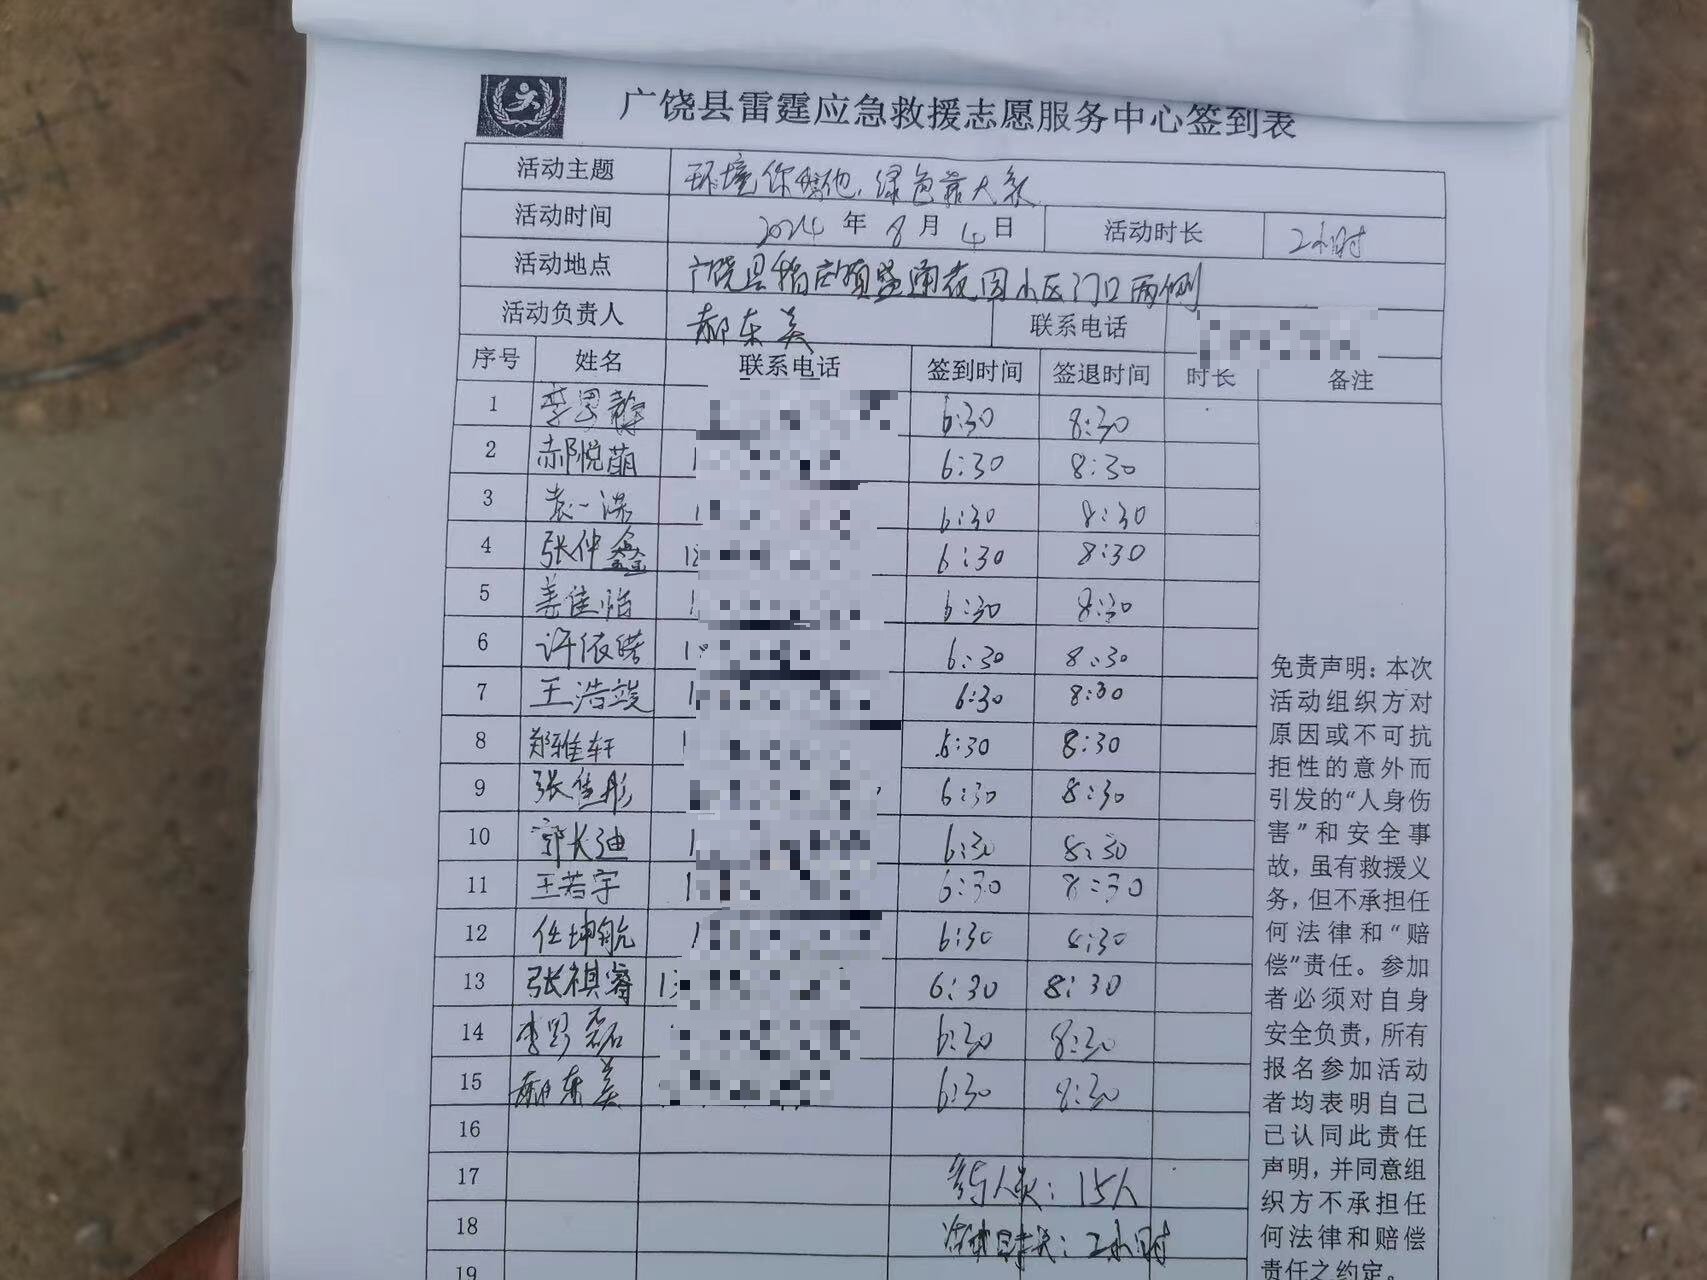 广饶县雷霆应急救援志愿服务中心签到表
活动主题 环境你我他,绿色靠大家
活动时间 2024年8月4日 活动时长 2小时
活动地点 广饶县稻庄镇盛通花园小区门口两侧
活动负责人 郝东美 联系电话
序号 姓名 联系电话 签到时间 签退时间 时长 备注
1 6:30 8:30
2 郝悦萌 1 6:30 8:30
3 袁一 1 6:30 8:30
4 张仲鑫 1 6:30 8:30
5 姜佳怡 1 6:30 8:30
6 许依 1 6:30 8:30
7 王浩竣 1 6:30 8:30
8 郑雅轩 1 6:30 8:30
9 张佳彤 6:30 8:30
10 郭长迪 1 6:30 8:30
11 王若宇 1 6:30 8:30
12 任坤航 1 6:30 8:30
13 张祺睿 13 6:30 8:30
14 李 磊 6:30 8:30
15 郝东美 6:30 8:30
16
17 参与人数:15人
18 活动时长:2小时
19
免责声明:本次
活动组织方对
原因或不可抗
拒性的意外而
引发的“人身伤
害”和安全事
故,虽有救援义
务,但不承担任
何法律和“赔
偿”责任。参加
者必须对自身
安全负责,所有
报名参加活动
者均表明自己
已认同此责任
声明,并同意组
织方不承担任
何法律和赔偿
责任之约定。